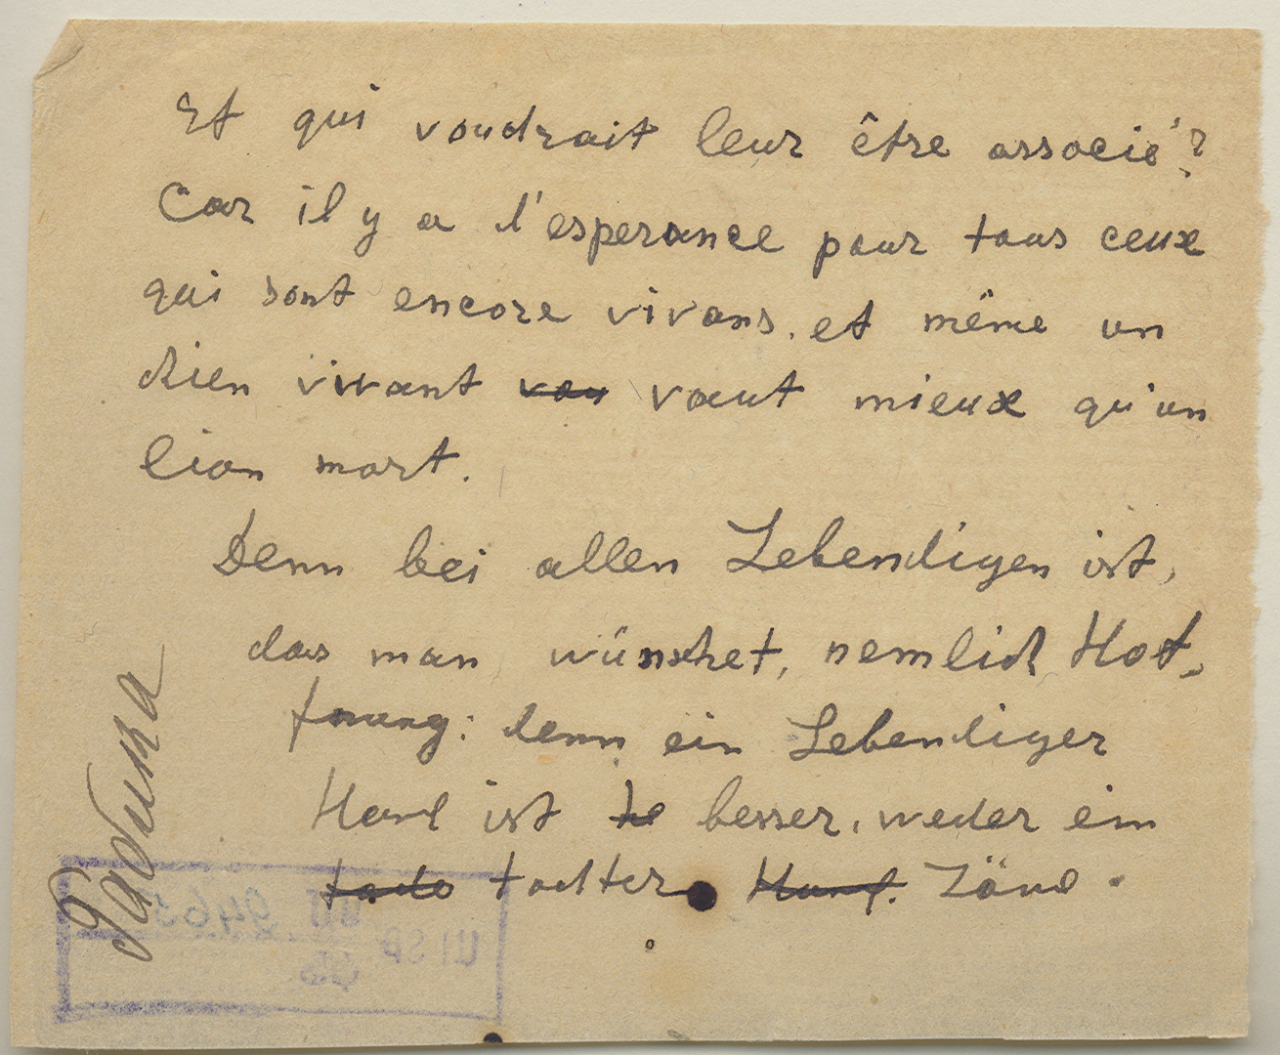 Et qui voudrait leur être associé?
Car il y a l'esperance pour tous ceux
qui sont encore vivans. et même un
chien vivant vau vaut mieux qu'un
lion mort.
Denn bei allen Lebendigen ist,
das man wünschet, nemlich Hof,
fnung: denn ein Lebendiger
Hund ist be besser, weder ein
tode todter Hund. Löwe.